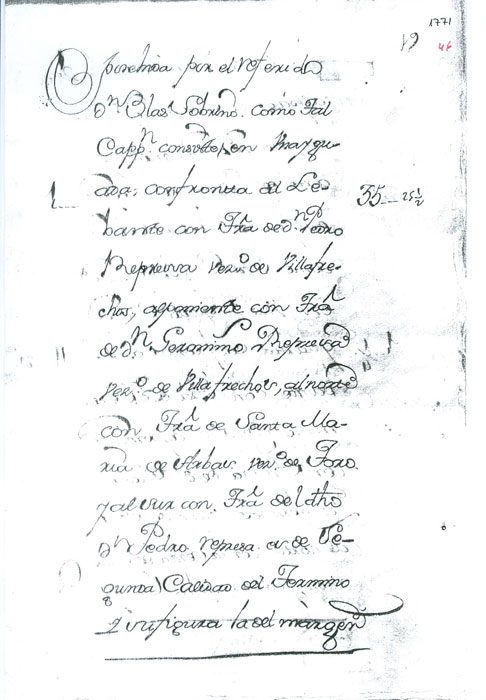 1771
19
46
por el referido
Dn Blas Sobrino. como Tal
Cappn. consiste, en
confronta al Le-
35 25½
bante con Tra de dn Pedro
vezo. de Villafre-
chos, al poniente con Tra
de dn Geronimo Represa
vezo. de Villafrechos, al norte
con Tra de Santa Ma-
ria de Arbas, vezo. de Toro
y al sur con Tra del dho
Dn Pedro represa es de Se-
gunda Calidad del Termino
y su figura la del margen